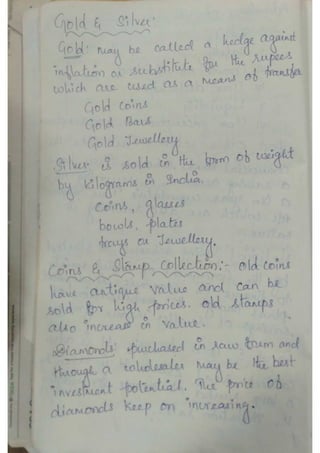 Gold & Silver:
Gold: may be called a hedge against
inflation or substitute for the rupees
which are used as a means of transfer
Gold coins
Gold Bars
Gold Jewellery
Silver is sold in the form of weight
by kilograms in India.
coins, glasses
bowls, plates
trays or Jewellery.
Coins & Stamp collection:- old coins
have antique value and can be
sold for high prices. old stamps
also increase in value.
Diamonds purchased in raw form and
through a wholesaler may be the best
investment potential. The price of
diamonds keep on increasing.